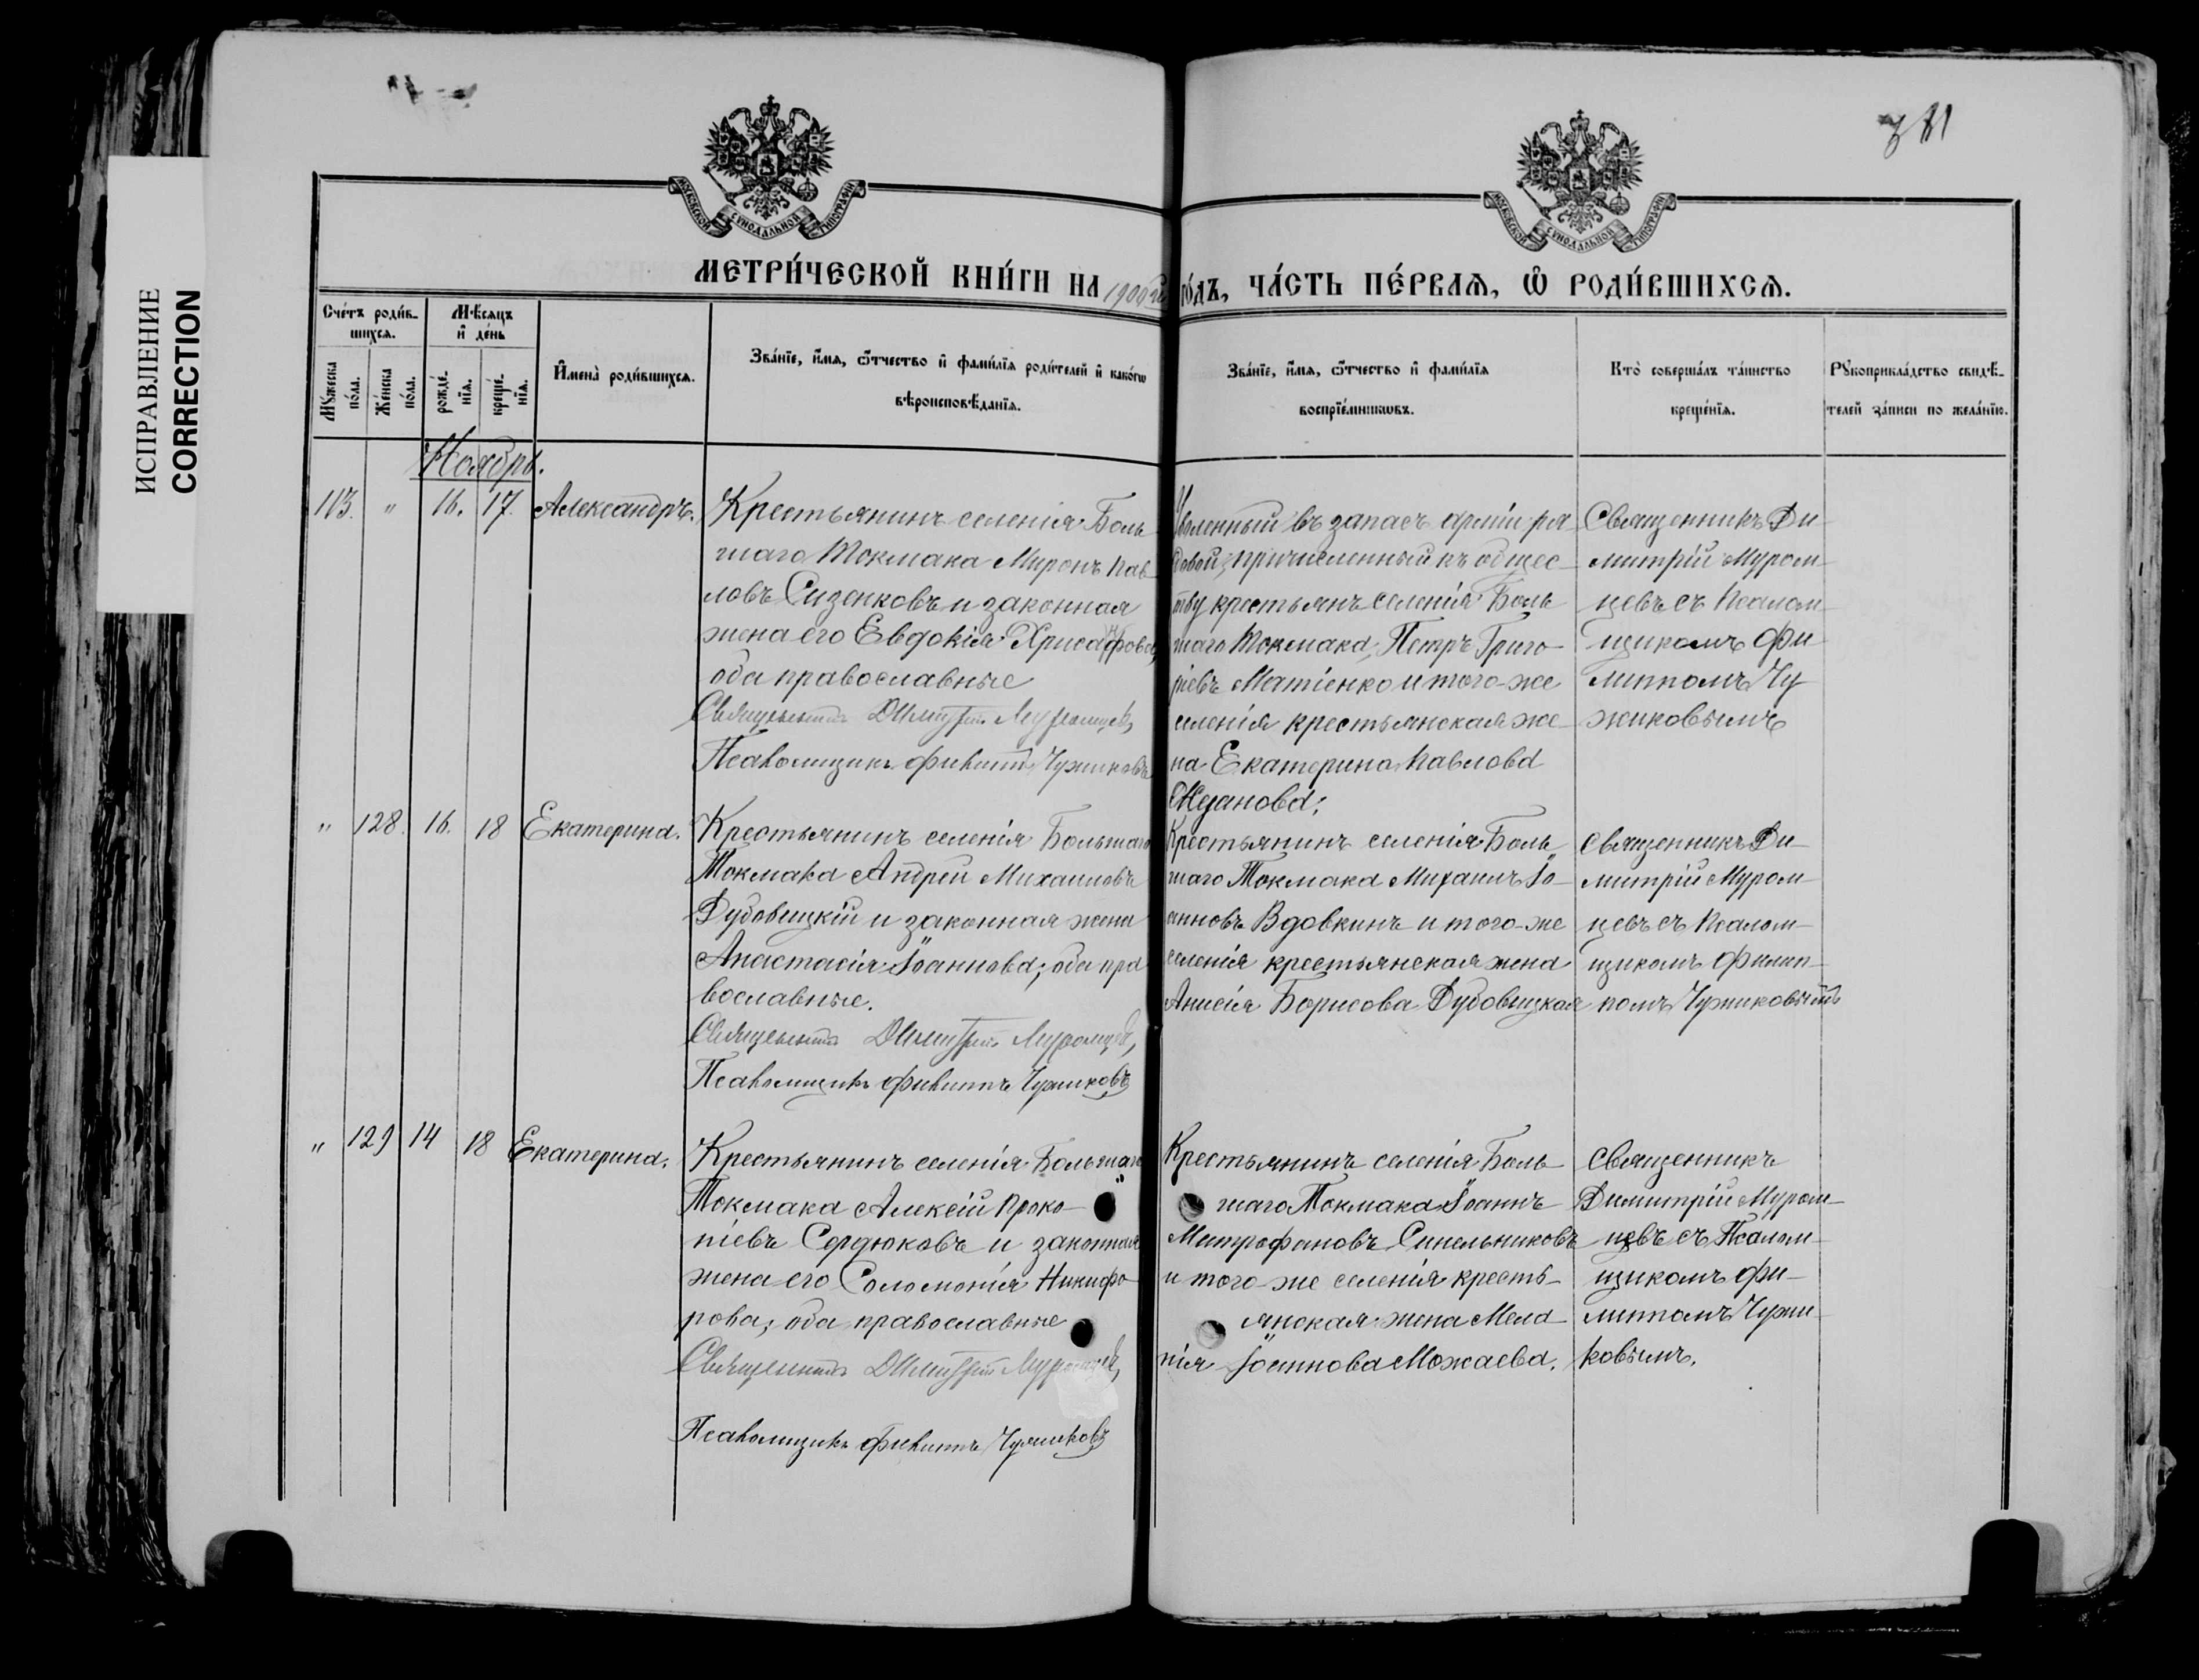 ИСПРАВЛЕНИЕ
CORRECTION
МОСКОВСКОЙ СѴНОДАЛЬНОЙ ТИПОГРАФІИ
МОСКОВСКОЙ СѴНОДАЛЬНОЙ ТИПОГРАФІИ
МЕТРИ́ЧЕСКОЙ КНИ́ГИ НА 1900й го́дъ, ЧА́СТЬ ПЕ́РВАЯ, Ѡ҆ РОДИ́ВШИХСЯ.
Сче́тъ роди́в-
шихся.
Мꙋ́жеска по́ла.
Же́нска по́ла.
Мѣ́сяцъ
и҆ де́нь
рожде́-
нїя.
креще́-
нїя.
И҆мена̀ роди́вшихся.
Зва́нїе, и҆́мя, ѻ҆́тчество и҆ фами́лїя роди́телей и҆ како́гѡ
вѣроисповѣ́данїя.
Зва́нїе, и҆́мя, ѻ҆́тчество и҆ фами́лїя
воспрїе́мникѡвъ.
Кто̀ соверша́лъ та́инство
креще́нїя.
Рꙋкоприкла́дство свидѣ́-
телей за́писи по жела́нїю.
Ноябрь.
113. " 16. 17. Александръ.
Крестьянинъ селенія Боль
шаго Токмака Миронъ Пав-
ловъ Сизенковъ и законная
жена его Евдокія Хрисанфова,
оба православные
Священникъ Димитрій Муромцевъ,
Псаломщикъ Филиппъ Чужиковъ
Уволенный въ запасъ арміи ря
довой, причисленный къ общес-
тву крестьянъ селенія Боль
шаго Токмака, Петръ Григо-
ріевъ Матіенко и того-же
селенія крестьянская же-
на Екатерина Павлова
Священникъ Ди-
митрій Муром-
цевъ съ Псалом-
щикомъ Фи-
липпомъ Чу
жиковымъ
" 128. 16. 18 Екатерина.
Крестьянинъ селенія Большаго
Токмака Андрей Михаиловъ
Дубовицкій и законная жена
Анастасія Іоаннова; оба пра
вославные.
Священникъ Димитрій Муромцевъ,
Псаломщикъ Филиппъ Чужиковъ
Крестьянинъ селенія Боль
шаго Токмака Михаилъ Іо-
анновъ Вдовкинъ и того-же
селенія крестьянская жена
Анисія Борисова Дубовицкая
Священникъ Ди-
митрій Муром-
цевъ съ Псалом-
щикомъ Филип-
помъ Чужиковымъ
" 129 14 18 Екатерина.
Крестьянинъ селенія Большаго
Токмака Алексій Проко-
піевъ Сердюковъ и законная
жена его Соломонія Никифо-
рова; оба православные
Священникъ Димитрій Муромцевъ,
Псаломщикъ Филиппъ Чужиковъ
Крестьянинъ селенія Боль-
шаго Токмака Іоаннъ
Митрофановъ Синельниковъ
и того-же селенія кресть-
янская жена Мела
нія Іоаннова Можаева.
Священникъ
Димитрій Муром-
цевъ съ Псалом-
щикомъ Фи-
липпомъ Чужи-
ковымъ.